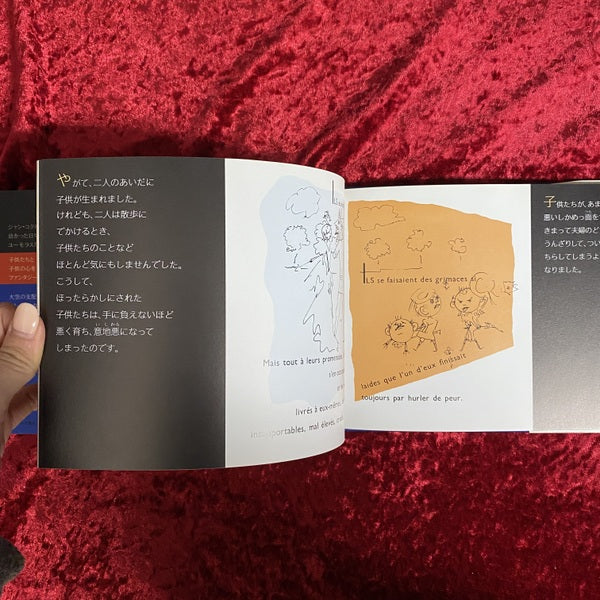 やがて、二人のあいだに
子供が生まれました。
けれども、二人は散歩に
でかけるとき、
子供たちのことなど
ほとんど気にもしませんでした。
こうして、
ほったらかしにされた
子供たちは、手に負えないほど
悪く育ち、意地悪になって
しまったのです。
Mais tout à leurs
livrés à eux-mêmes,
mal élevés,
ILS se faisaient des grimaces si
laides que l'un d'eux finissait
toujours par hurler de peur.
子供たちが、あま
悪いしかめっ面を
きまって夫婦のど
うんざりして、つい
ちらしてしまうよ
なりました。
ジャン・コク
ユーモラス
子供たちと
子供の心を
ファンタジー